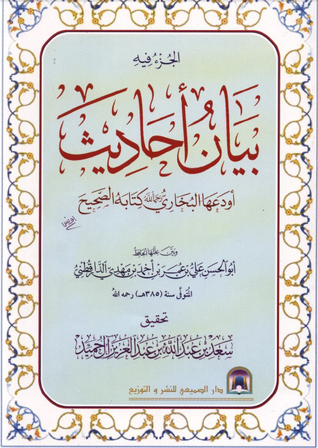 الجزء فيه
بيان أحاديث
أودعها البخاري رحمه الله كتابه الصحيح
وبين عللها الحافظ
أبو الحسن علي بن عمر بن أحمد بن مهدي الدارقطني
المتوفى سنة (٣٨٥هـ) رحمه الله
تحقيق
سعد بن عبد الله بن عبد العزيز الحميد
دار الصميعي للنشر والتوزيع